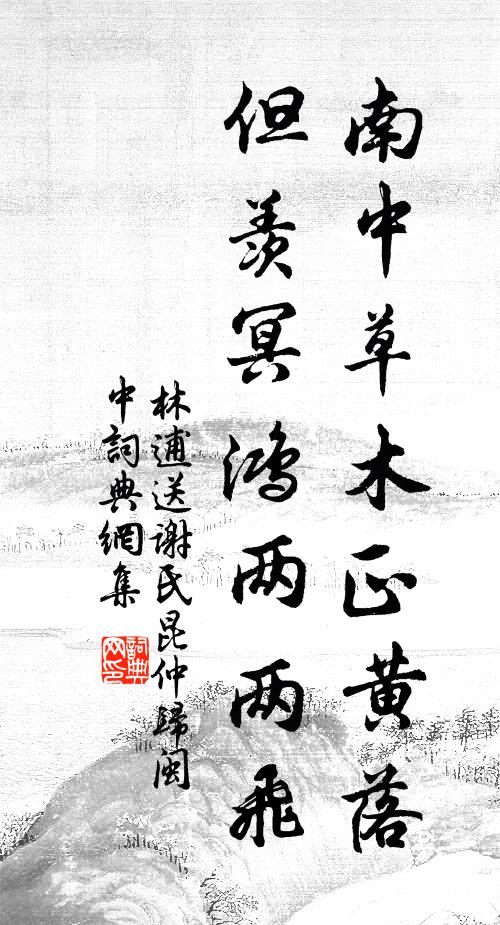 南中草木正黄落
但羡冥鸿两两飛
林逋送谢氏昆仲歸闽
中詞典網集
詞典
网印